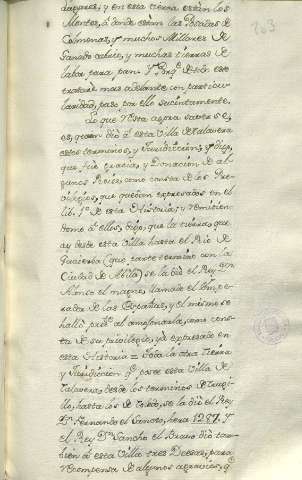 203
lugares, y en esta tierra estan los
Montes, á donde estan las Posadas de
Colmenas, y muchos Millares de
Ganado cabrio, y muchas tierras de
labor para pan. Y porq. de todo esto
trataré mas adelante con particu-
laridad, paso por ello sucintamente.
Lo que resta agora saber se,
es, quien dió á esta Villa de Talavera
estos terminos, y Jurisdicion, y digo,
que fue gracia, y Donacion de al-
gunos Reies, como consta de los Pre-
vilegios, que quedan expresados en el
lib. 1º de esta Historia, y remitien-
dome á ellos, digo, que la tierra, que
ay desde esta Villa hasta el Rio de
(que parte termino con la
Ciudad de Abila) se la dió el Rey Don
Alonso el magno, llamado el Empe-
rador de las Españas, y el mismo se
halló pres.te al amojonarla, como cons-
ta de su privilegio, ya expresado en
esta Historia = Toda la otra Tierra
y Jurisdicion q.e posee esta Villa de
Talavera, desde los terminos de Trugi-
llo, hasta los de Toledo, se la dió el Rey
Dn. Fernando el Santo, hera 1287. Y
el Rey Dn. Sancho el Bravo dió tam-
bien á esta Villa tres Deesas, para
recompensa de algunos agravios, q.